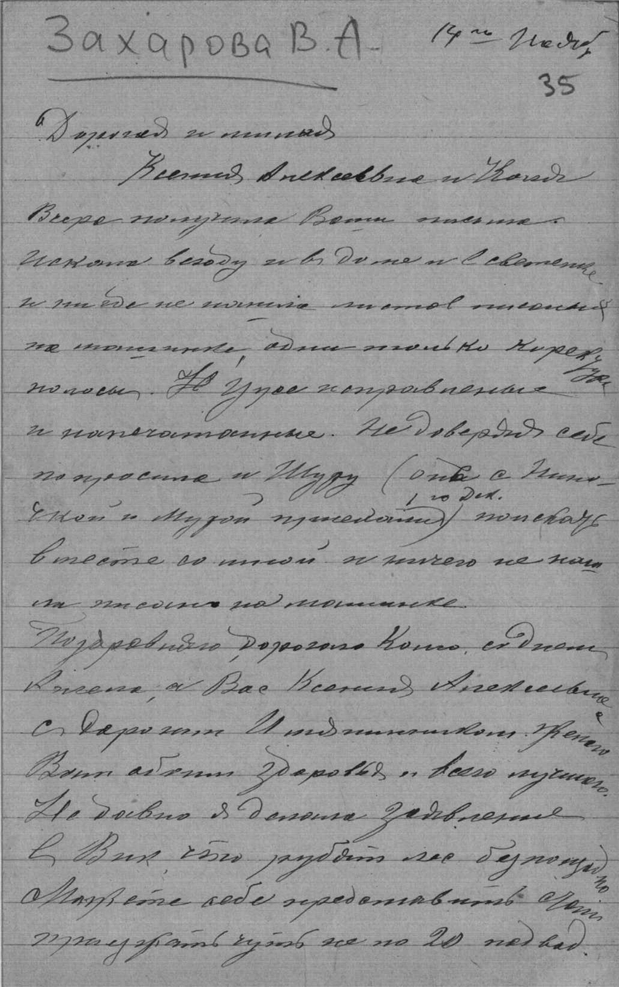 Захарова В.А.
14го Ноября
35
Дорогая и милая
Ксения Алексеевна и Коля
Вчера получила Ваши письма.
Искала всюду и в доме и в светелке
и нигде не нашла листов писаных
на машинке, одни только корректур
полосы. Уже исправленые
и напечатанные. Не доверяя себе
попросила и Шуру (она с Нино-
чкой и Мурой приехали) поискать
1 го дек.
вместе со мной и ничего не наш
ли писано на машинке
Поздравляю дорогого Колю со днем
Ангела, а Вас Ксения Алексеевна
с дорогим Имянинником. Желаю
Вам обеим здоровья и всего лучшего.
Недавно я делала заявление
в Вик, что рубят лес безпощадно
Можете себе представить
приезжать чуть не по 20 подвод.